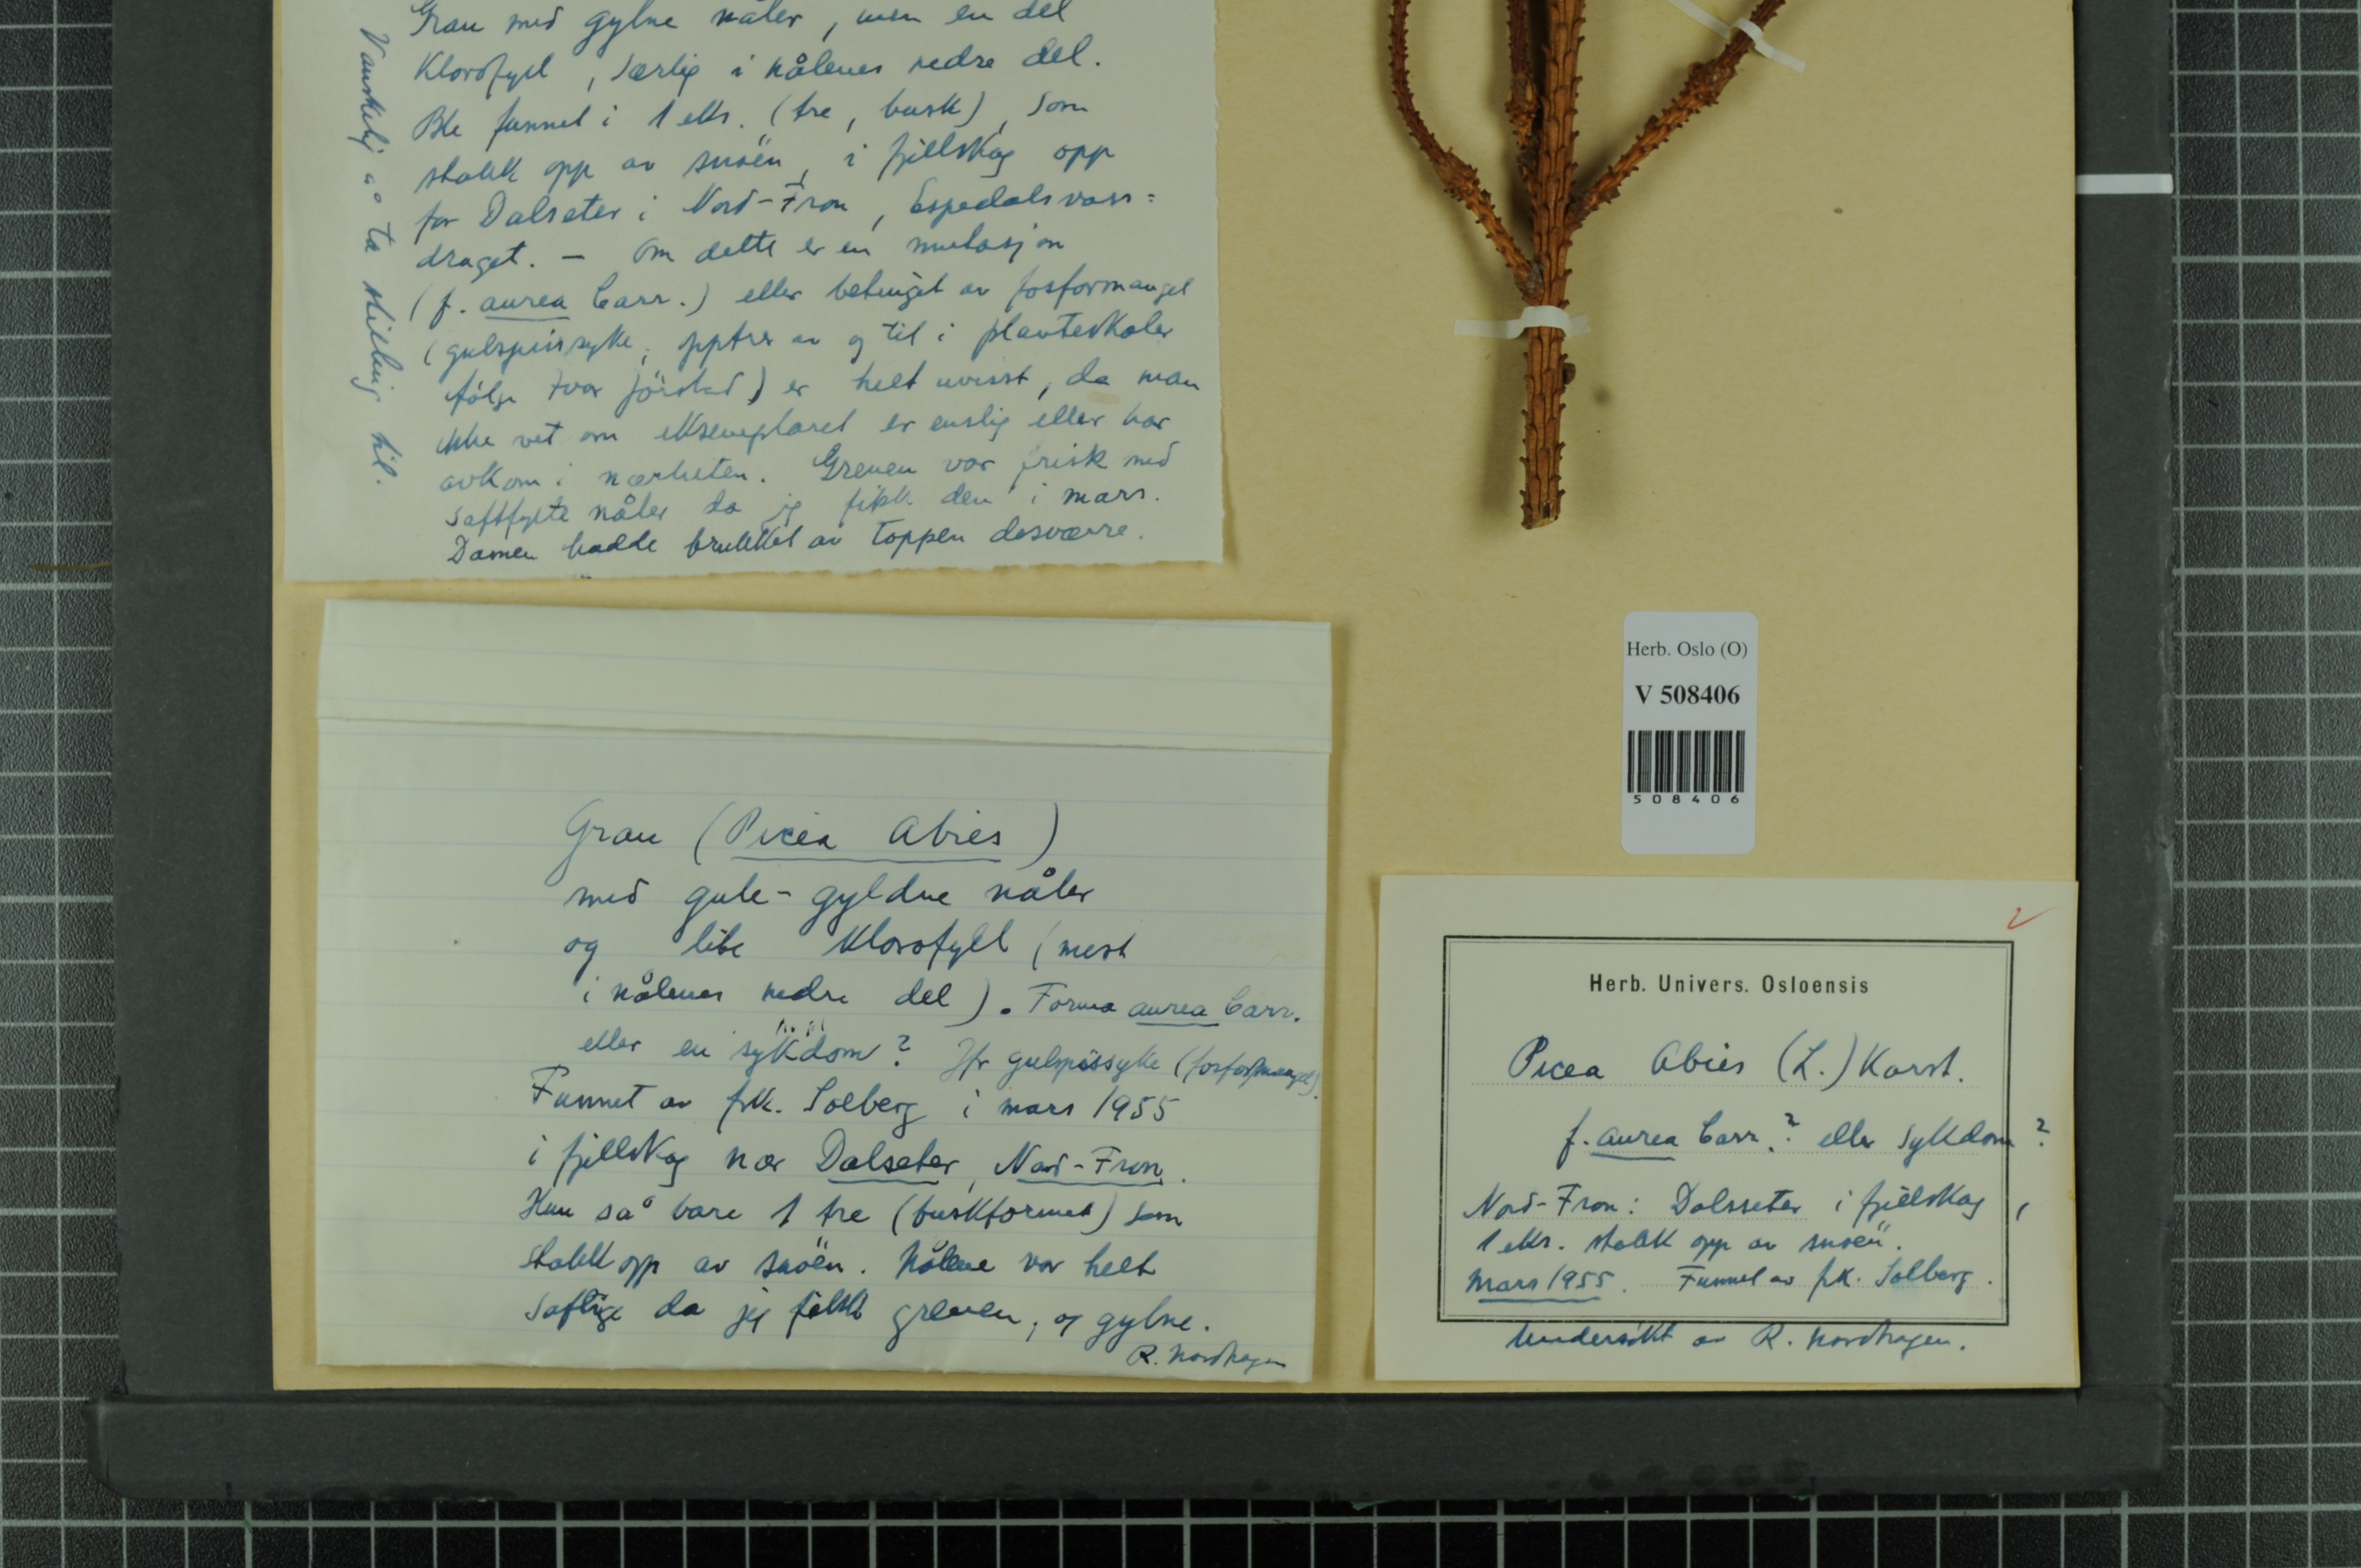 Gran med gylne nåler, men en del
Klorofyll, særlig i nålenes nedre del.
Ble funnet i 1 eks. (tre, busk), som
stakk opp av snøen, i fjellskog opp
for Dalseter i Nord-Fron, Espedalsvass=
draget. — Om dette er en mutasjon
(f. aurea Carr.) eller betinget av fosformangel
(gulspissyke, opptrer av og til i planteskoler
ifølge Ivar Jørstad) er helt uvisst, da man
ikke vet om eksemplaret er enslig eller har
avkom i nærheten. Grenen var frisk med
saftfylte nåler da jeg fikk den i mars.
Damen hadde brukket av toppen desværre.
Vanskelig å ta stilling til.
Gran (Picea Abies)
med gule-gyldne nåler
og lite klorofyll (mest
i nålenes nedre del). Forma aurea Carr.
eller en sykdom? Jfr gulspissyke (fosformangel).
Funnet av frk. Solberg i mars 1955
i fjellskog nær Dalseter, Nord-Fron.
Hun så bare 1 tre (buskformet) som
stakk opp av snøen. Nålene var helt
saftige da jeg fikk grenen, og gylne.
R. Nordhagen
Herb. Oslo (O)
V 508406
508406
Herb. Univers. Osloensis
Picea Abies (L.) Karst.
f. aurea Carr.? eller sykdom?
Nord-Fron: Dalsseter i fjellskog,
1 eks. stakk opp av snøen.
Mars 1955. Funnet av frk. Solberg.
Undersøkt av R. Nordhagen.